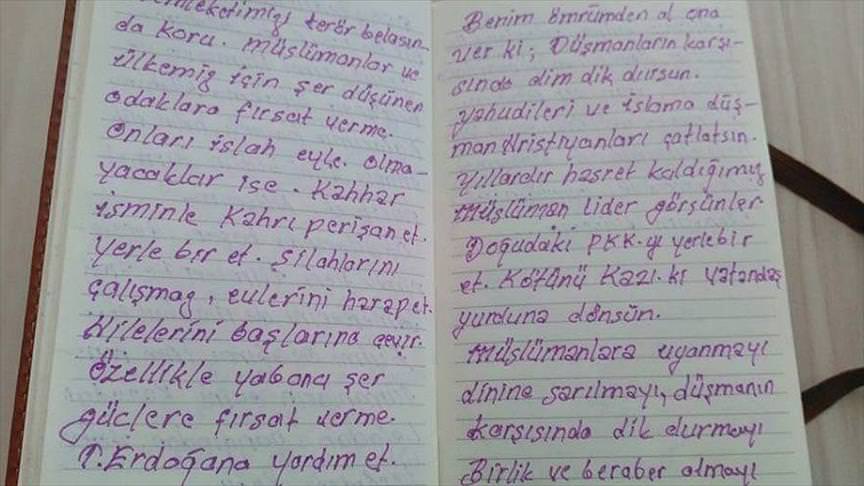 terör belasın-
da koru. müslümanlar ve
ülkemiz için şer düşünen
odaklara fırsat verme.
Onları islah eyle. olma-
yacaklar ise. Kahhar
isminle Kahrı perişan et.
yerle bir et. Silahlarını
çalışmaz, evlerini harap et.
Hilelerini başlarına çevir.
Özellikle yabancı şer
güclere fırsat verme.
T. Erdoğana yardım et.
Benim ömrümden al ona
ver ki; Düşmanların karşı-
sında dim dik dursun.
yahudileri ve islama düş-
man Hristiyanları çatlatsın.
Yıllardır hasret kaldığımız
müslüman lider görsünler.
Doğudaki PKK-yı yerlebir
et. Kötünü Kazı. ki vatandaş
yurduna dönsün.
Müslümanlara uyanmayı
dinine sarılmayı, düşmanın
karşısında dik durmayı
Birlik ve beraber olmayı